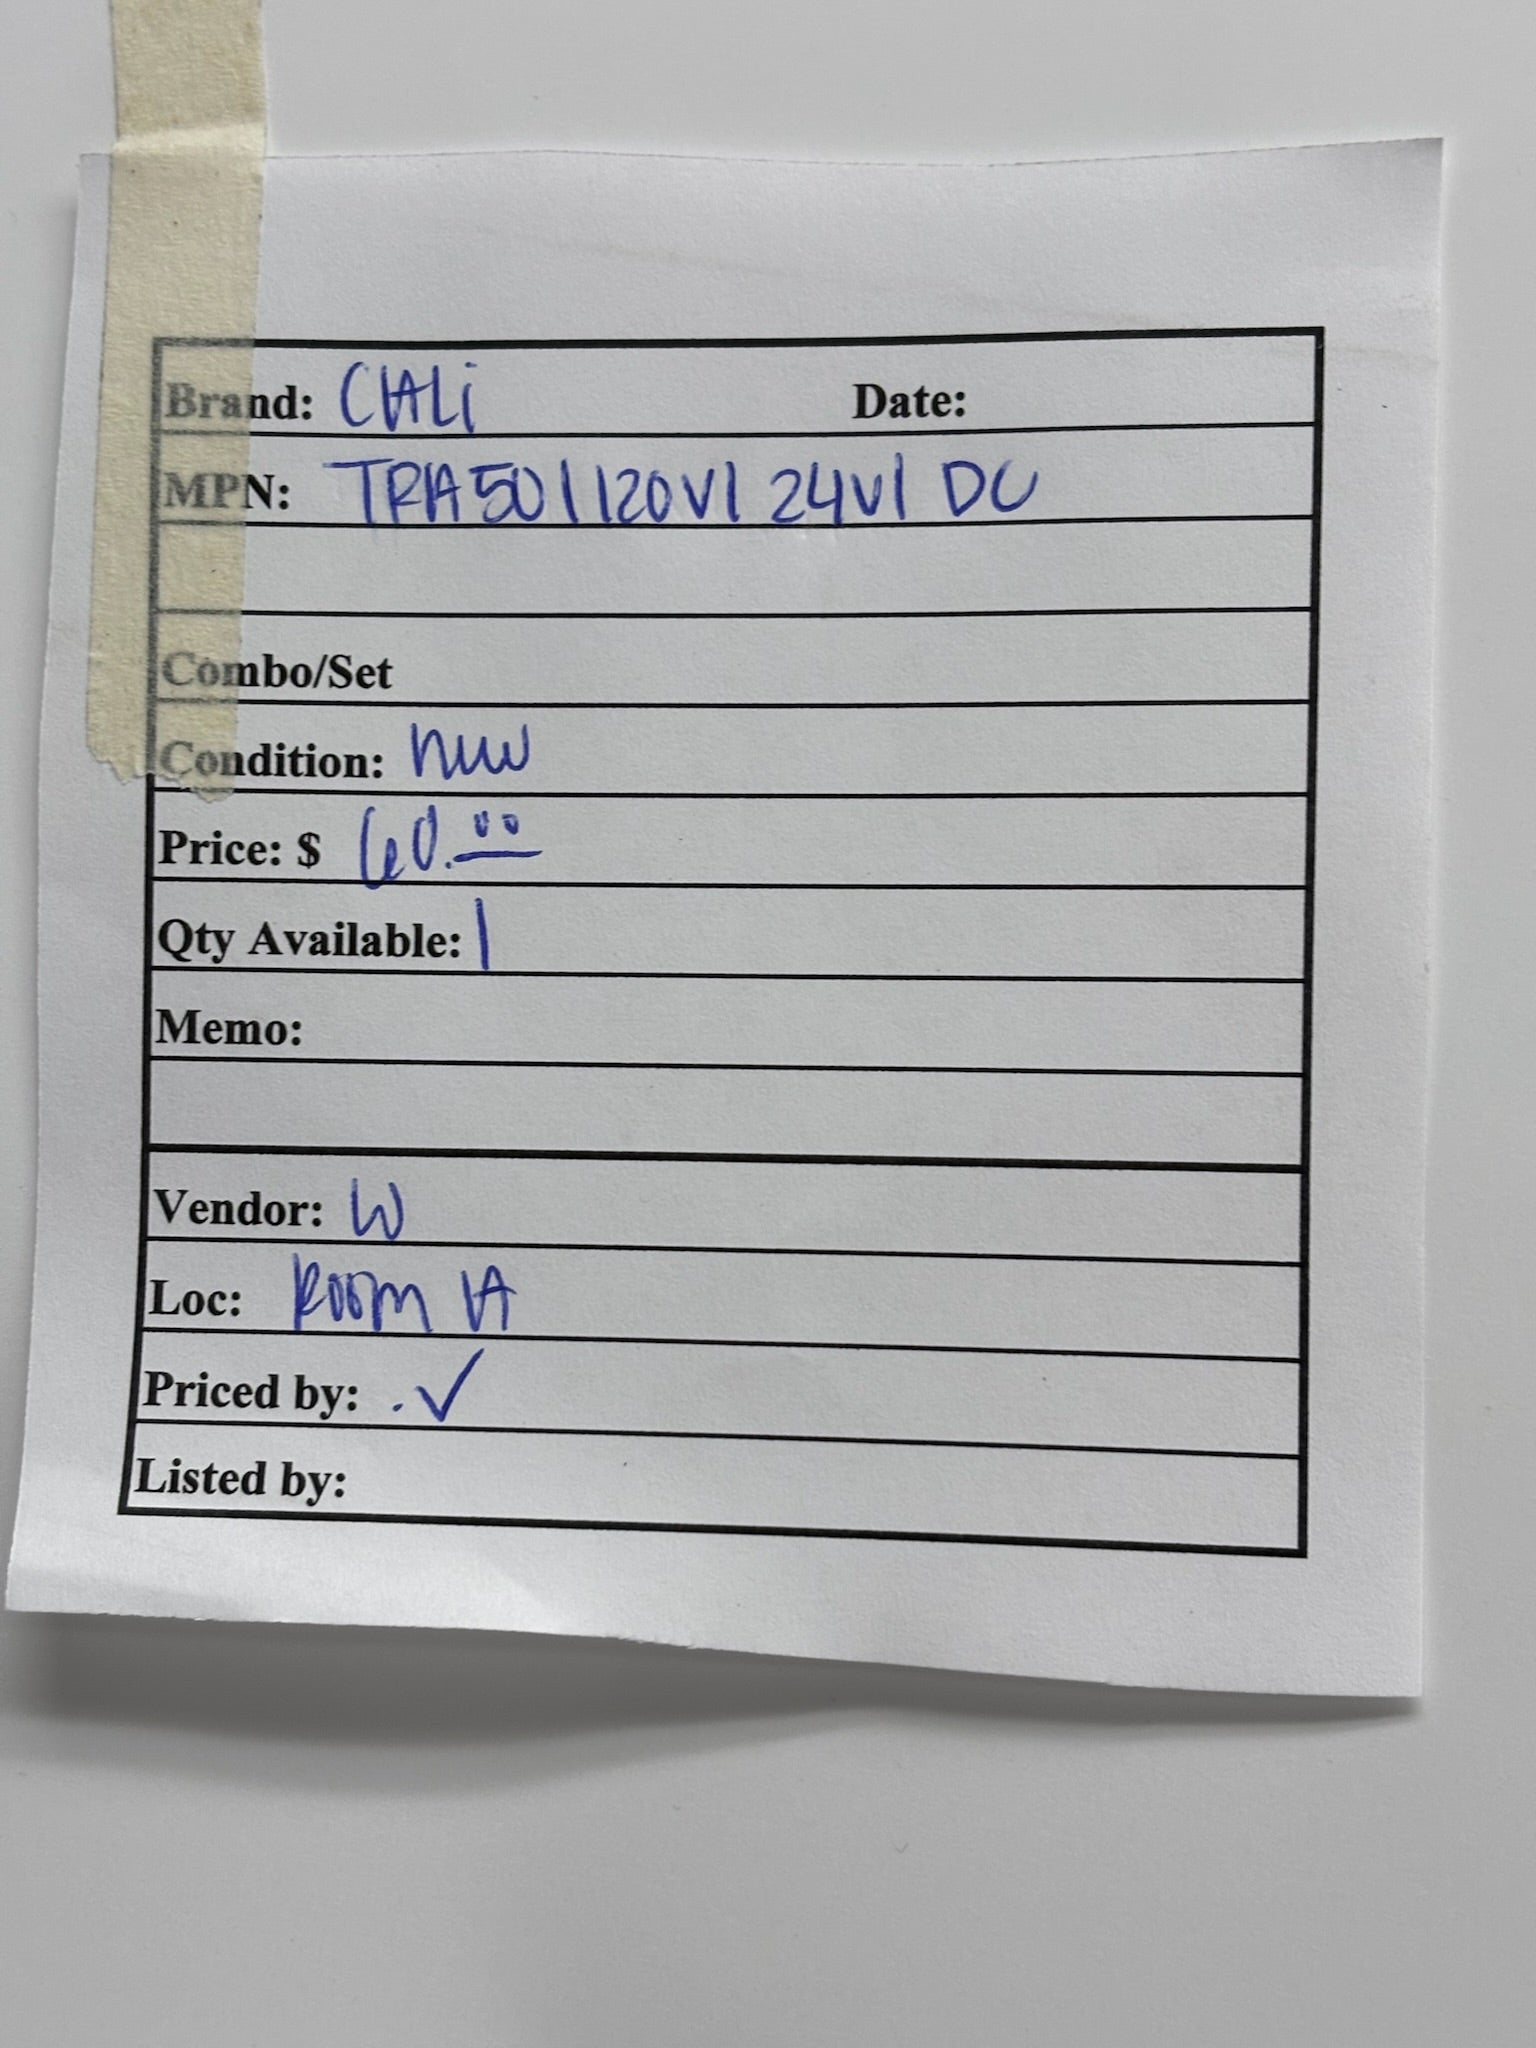 Brand: CALi Date:
MPN: TRA50/120V/24V/DC
Combo/Set
Condition: new
Price: $ 60.00
Qty Available: 1
Memo:
Vendor: W
Loc: ROOM A
Priced by: .✓
Listed by: